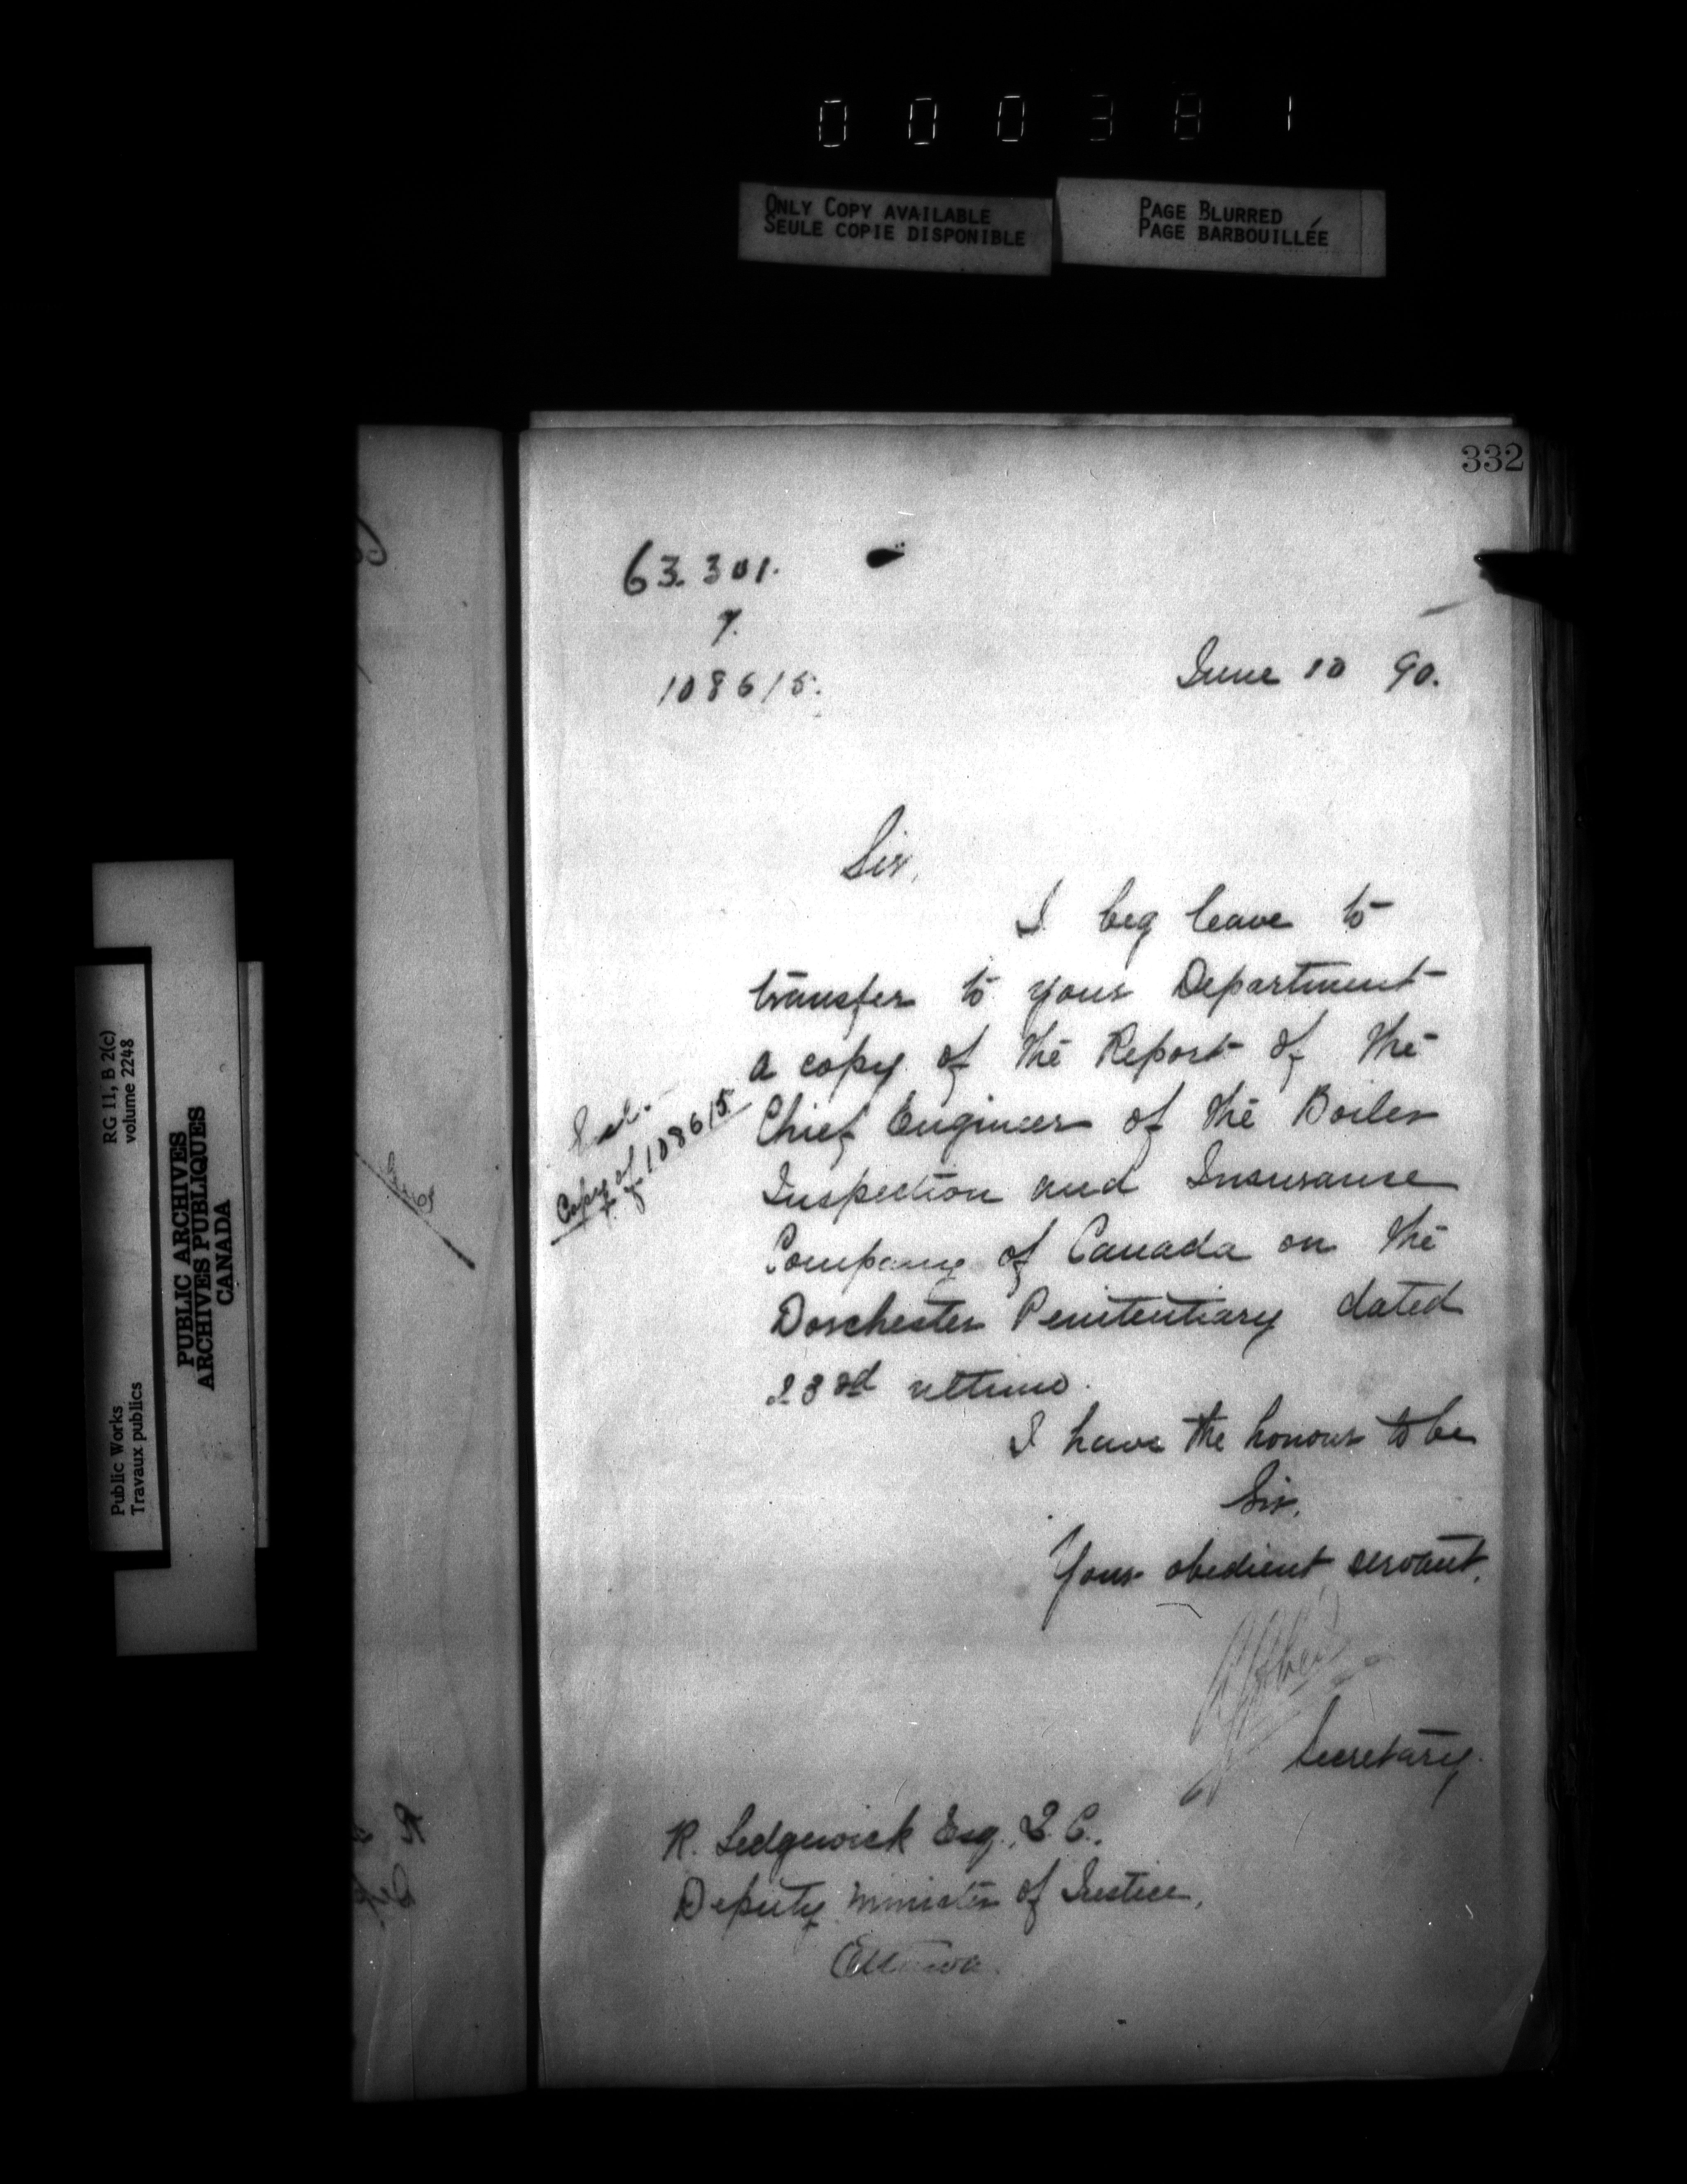 000381
ONLY COPY AVAILABLE
SEULE COPIE DISPONIBLE
PAGE BLURRED
PAGE BARBOUILLÉE
332
63.301.
7.
108615.
June 10 90.
Sir,
I beg leave to
transfer to your Department
a copy of the Report of the
Chief Engineer of the Boiler
Inspection and Insurance
Company of Canada on the
Dorchester Penitentiary dated
23rd ultimo.
I have the honour to be
Sir,
Your obedient servant,
Secretary.
Encl.
Copy of
108615
R. Sedgewick Esq., Q.C.,
Deputy Minister of Justice,
Ottawa.
RG 11, B 2(c)
volume 2248
Public Works
Travaux publics
PUBLIC ARCHIVES
ARCHIVES PUBLIQUES
CANADA